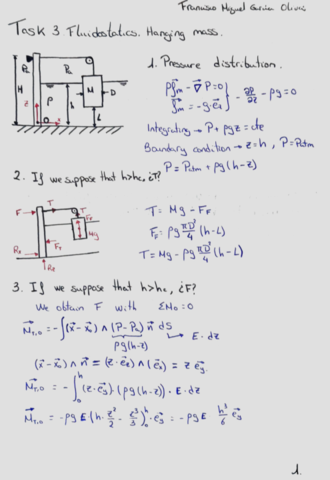 Francisco Miguel García Olivis
Task 3 Fluidostatics. Hanging mass.
1. Pressure distribution.
ρf̄m - ∇P = 0
f̄m = -g·ēz
} - ∂P/∂z - ρg = 0
Integrating → P + ρgz = cte
Boundary condition → z=h, P=Patm
P = Patm + ρg(h-z)
H
ρ
h
M
D
L
z
O
2. If we suppose that h>hc, ¿T?
F
T
FF
Mg
T = Mg - FF
FF = ρg πD²/4 (h-L)
T = Mg - ρg πD²/4 (h-L)
3. If we suppose that h>hc, ¿F?
We obtain F with ΣMo = 0
M̄T,o = -∫(x̄ - x̄o) ∧ (P-Pa) n̄ dS
ρg(h-z)
E·dz
(x̄ - x̄o) ∧ n̄ = (z·ēz) ∧ (ēx) = z ēy
M̄T,o = -∫₀ʰ (z·ēy)·(ρg(h-z))·E·dz
M̄T,o = -ρgE (h·z²/2 - z³/3)₀ʰ ēy = -ρgE h³/6 ēy
1.